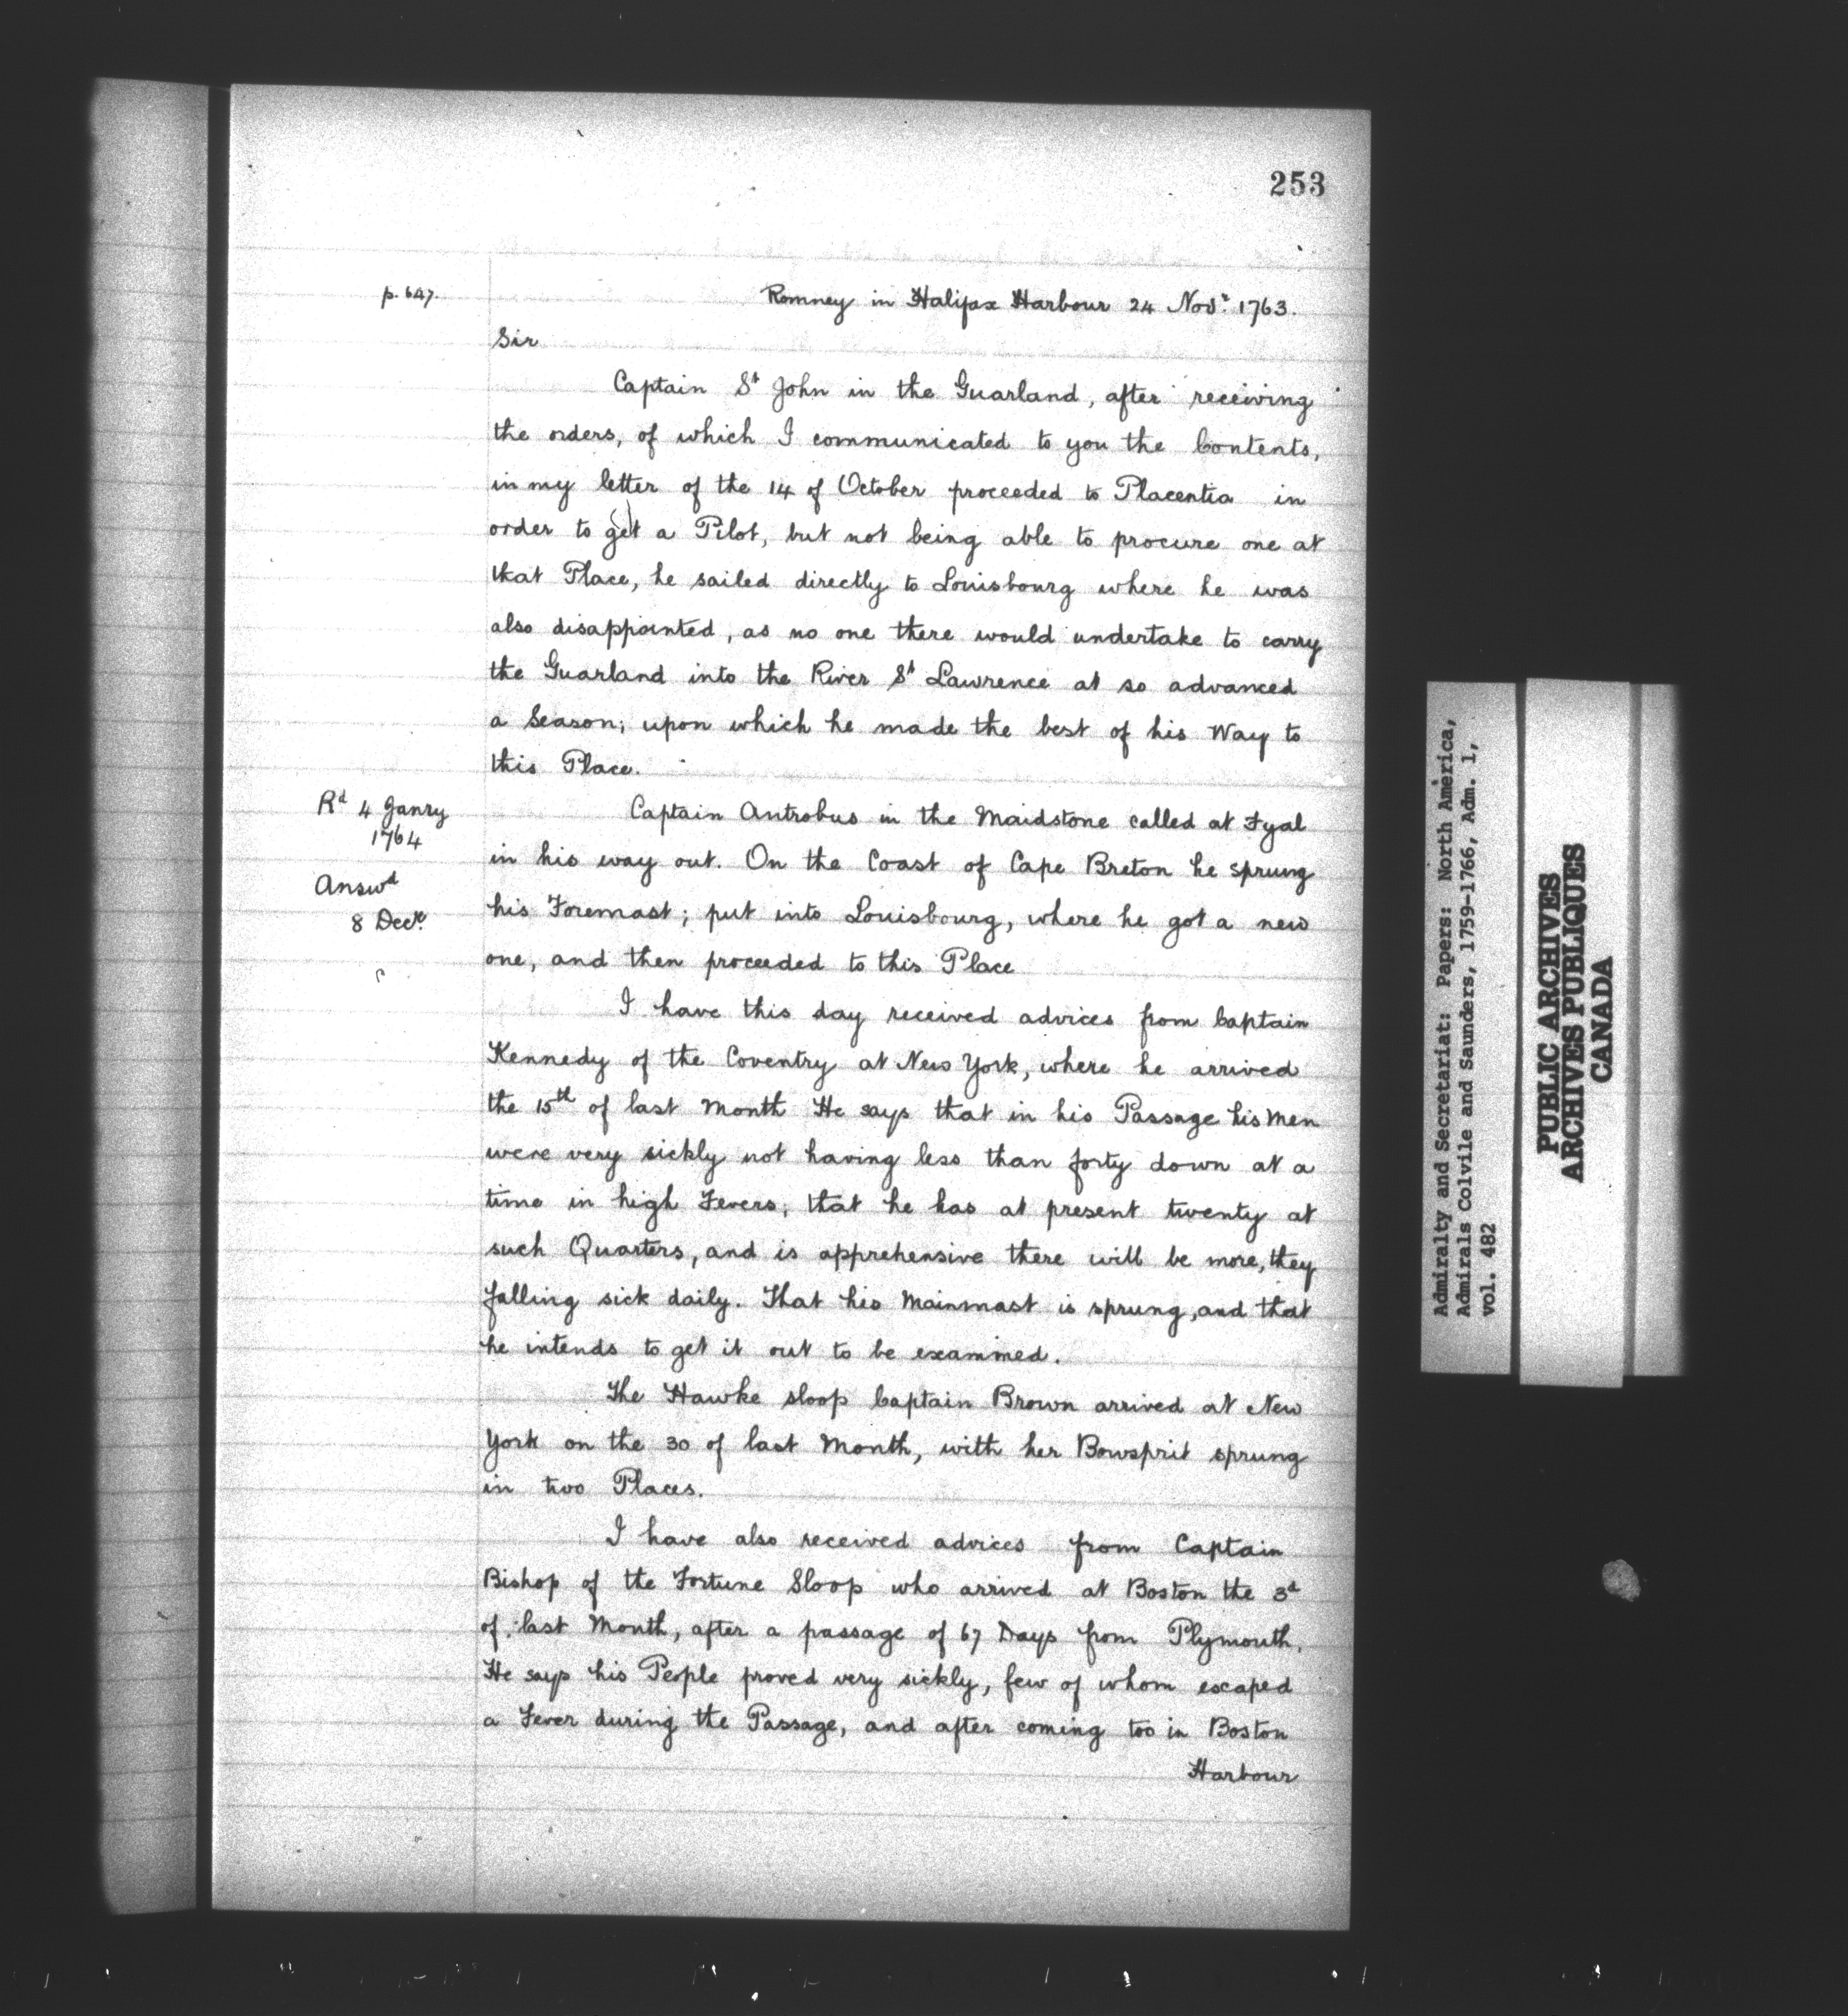 253
p. 647.
Romney in Halifax Harbour 24 Novr. 1763.
Sir
Captain St John in the Guarland, after receiving
the orders, of which I communicated to you the Contents,
in my letter of the 14 of October proceeded to Placentia in
order to get a Pilot, but not being able to procure one at
that Place, he sailed directly to Louisbourg where he was
also disappointed, as no one there would undertake to carry
the Guarland into the River St Lawrence at so advanced
a Season; upon which he made the best of his Way to
this Place.
Rd 4 Janry
1764
Answd
8 Decr.
Captain Antrobus in the Maidstone called at Fyal
in his way out. On the Coast of Cape Breton he sprung
his Foremast; put into Louisbourg, where he got a new
one, and then proceeded to this Place
I have this day received advices from Captain
Kennedy of the Coventry at New York, where he arrived
the 15th of last Month He says that in his Passage his Men
were very sickly not having less than forty down at a
time in high Fevers; that he has at present twenty at
such Quarters, and is apprehensive there will be more, they
falling sick daily. That his Mainmast is sprung, and that
he intends to get it out to be examined.
The Hawke sloop Captain Brown arrived at New
York on the 30 of last Month, with her Bowsprit sprung
in two Places.
I have also received advices from Captain
Bishop of the Fortune Sloop who arrived at Boston the 3d
of last Month, after a passage of 67 Days from Plymouth.
He says his People proved very sickly, few of whom escaped
a Fever during the Passage, and after coming too in Boston
Harbour
Admiralty and Secretariat: Papers: North America,
Admirals Colvile and Saunders, 1759-1766, Adm. 1,
vol. 482
PUBLIC ARCHIVES
ARCHIVES PUBLIQUES
CANADA